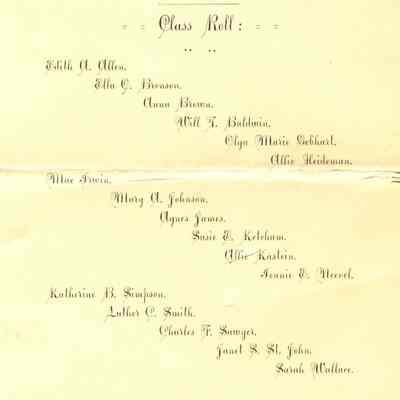 Class Roll:
Edith A. Allen.
Ella C. Bronson.
Anna Brown.
Will T. Baldwin.
Olga Marie Gebhart.
Allie Heideman.
Mae Irwin.
Mary A. Johnson.
Agnes James.
Susie E. Ketcham.
Allie Kastein.
Jennie E. Neevel.
Katherine B. Simpson.
Luther C. Smith.
Charles F. Sawyer.
Janet S. St. John.
Sarah Wallace.